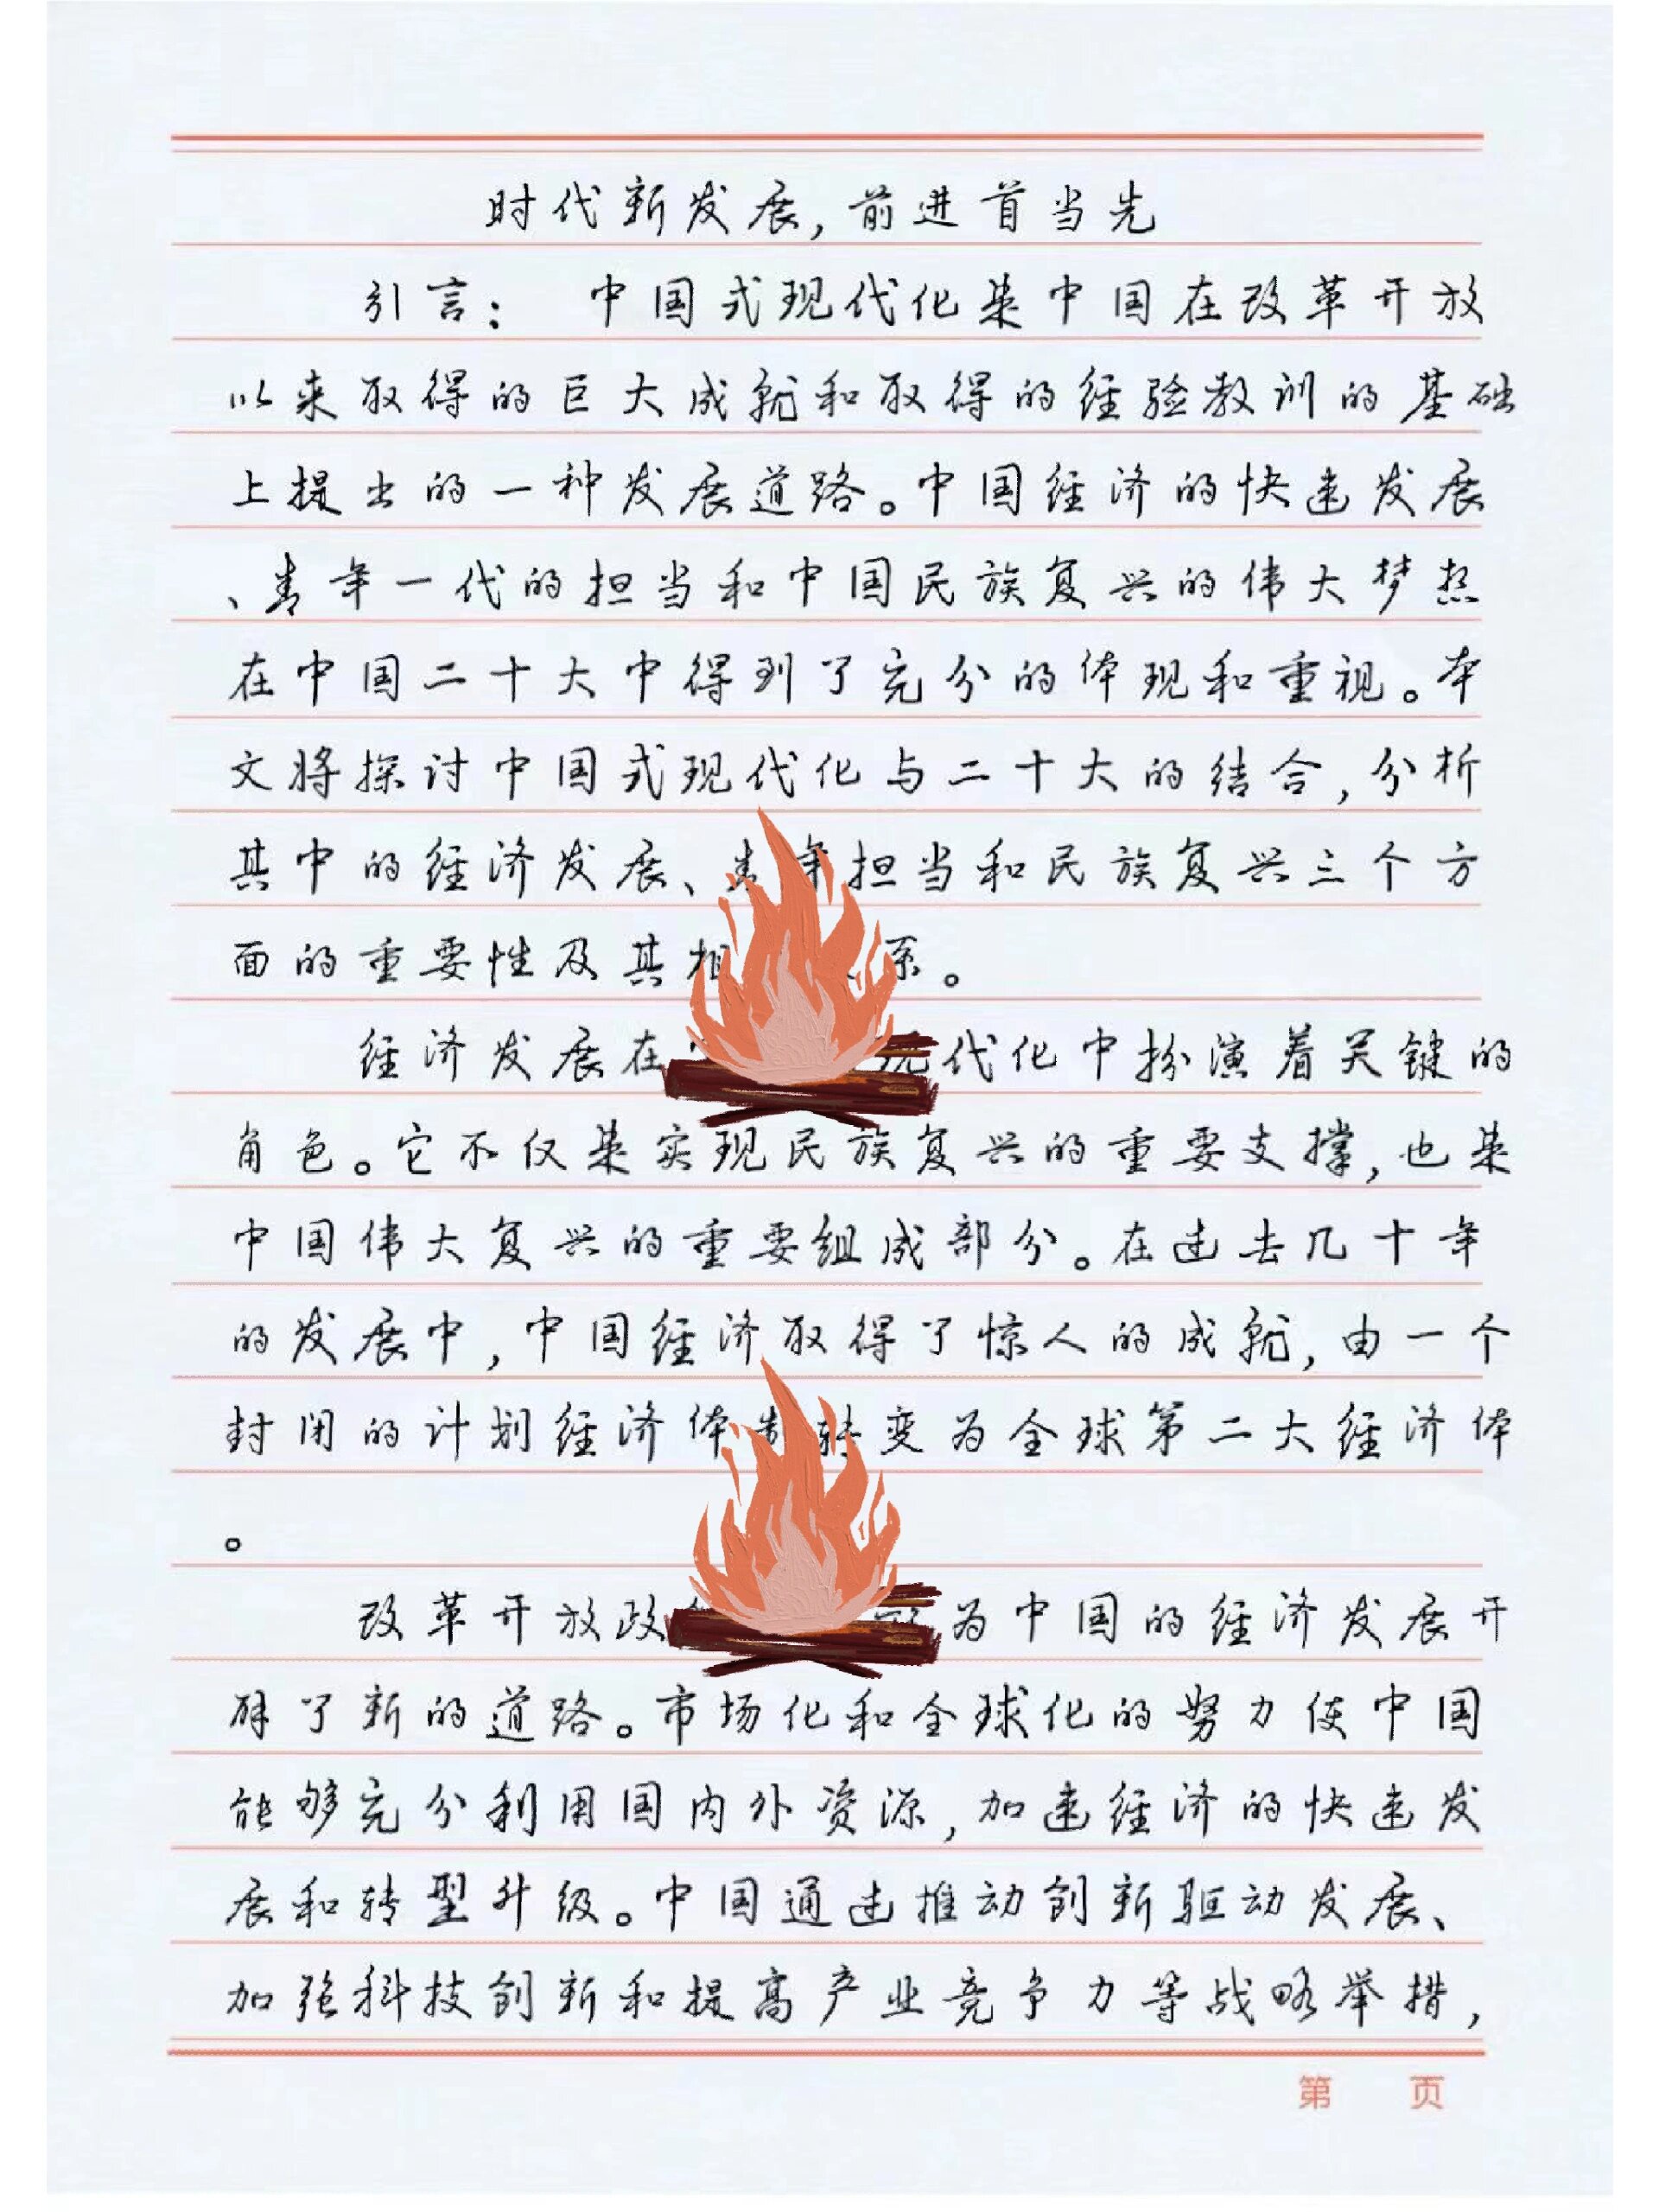 时代新发展,前进首当先
引言: 中国式现代化是中国在改革开放
以来取得的巨大成就和取得的经验教训的基础
上提出的一种发展道路。中国经济的快速发展
、青年一代的担当和中国民族复兴的伟大梦想
在中国二十大中得到了充分的体现和重视。本
文将探讨中国式现代化与二十大的结合,分析
其中的经济发展、青年担当和民族复兴三个方
面的重要性及其相系。
经济发展在现代化中扮演着关键的
角色。它不仅是实现民族复兴的重要支撑,也是
中国伟大复兴的重要组成部分。在过去几十年
的发展中,中国经济取得了惊人的成就,由一个
封闭的计划经济体制转变为全球第二大经济体
。
改革开放政为中国的经济发展开
辟了新的道路。市场化和全球化的努力使中国
能够充分利用国内外资源,加速经济的快速发
展和转型升级。中国通过推动创新驱动发展、
加强科技创新和提高产业竞争力等战略举措,
第 页